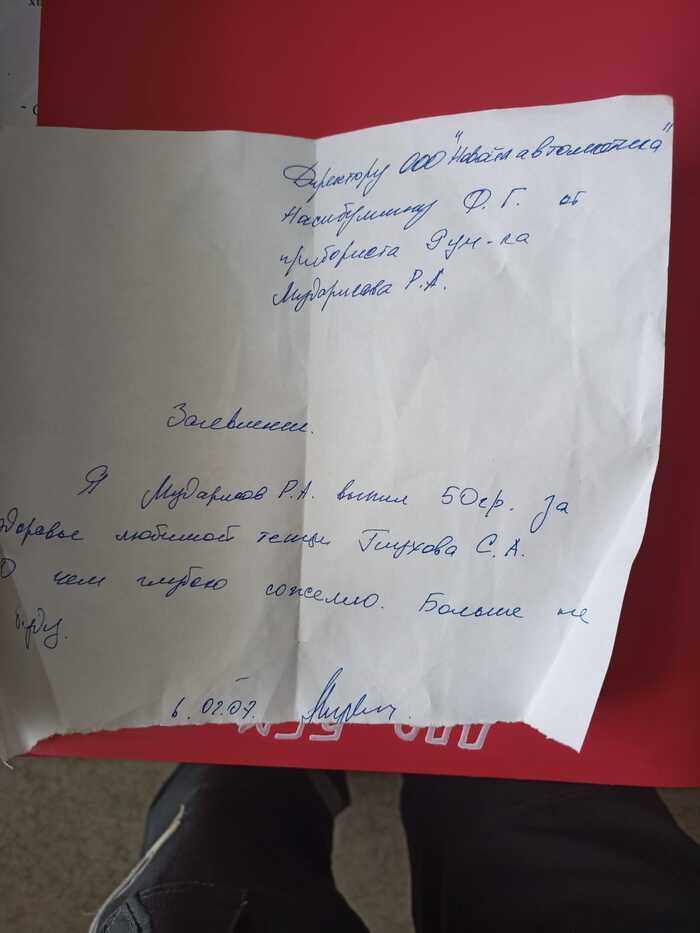 Директору ООО "Новая автоматика"
Насибуллину Ф. Г. от
прибориста
Мударисова Р.А.
Заевление.
Я Мударисов Р.А. выпил 50гр. за
здоровье любимой тещи Глухова С.А.
О чем глубоко сожелею. Больше не
буду.
6.02.07.